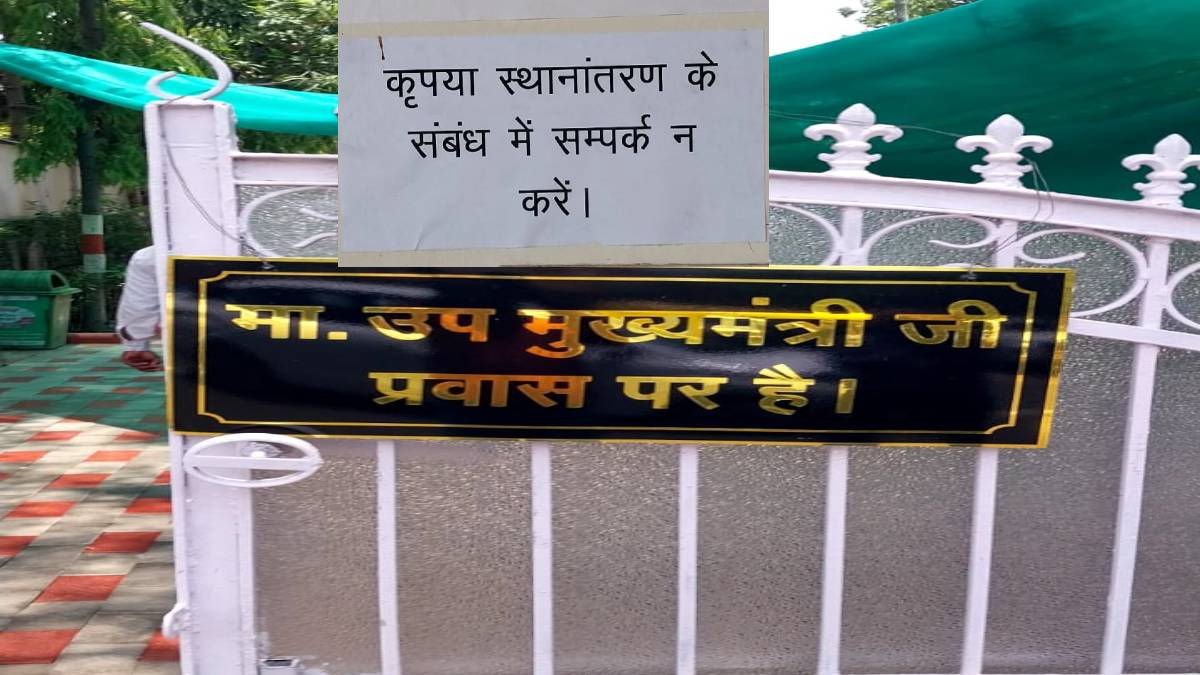 कृपया स्थानांतरण के
संबंध में सम्पर्क न
करें।
मा. उप मुख्यमंत्री जी
प्रवास पर है।